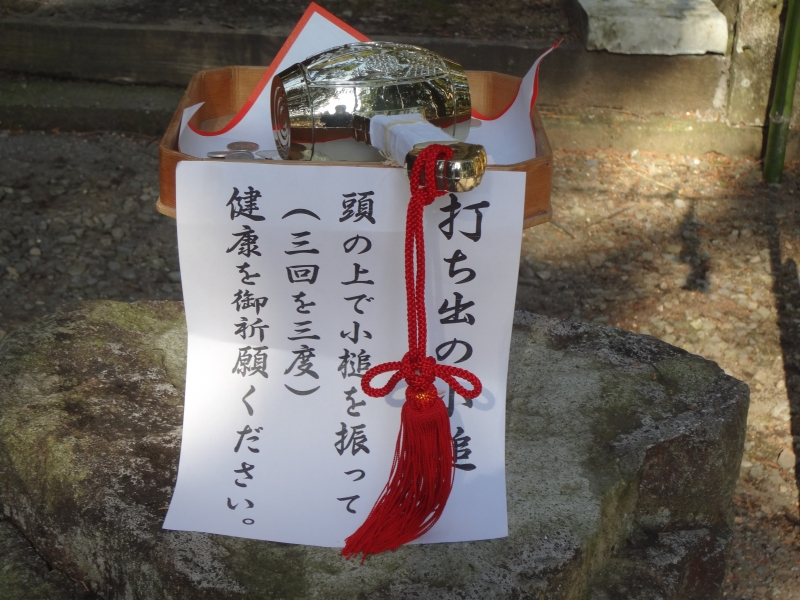 打ち出の小槌
頭の上で小槌を振って
（三回を三度）
健康を御祈願ください。